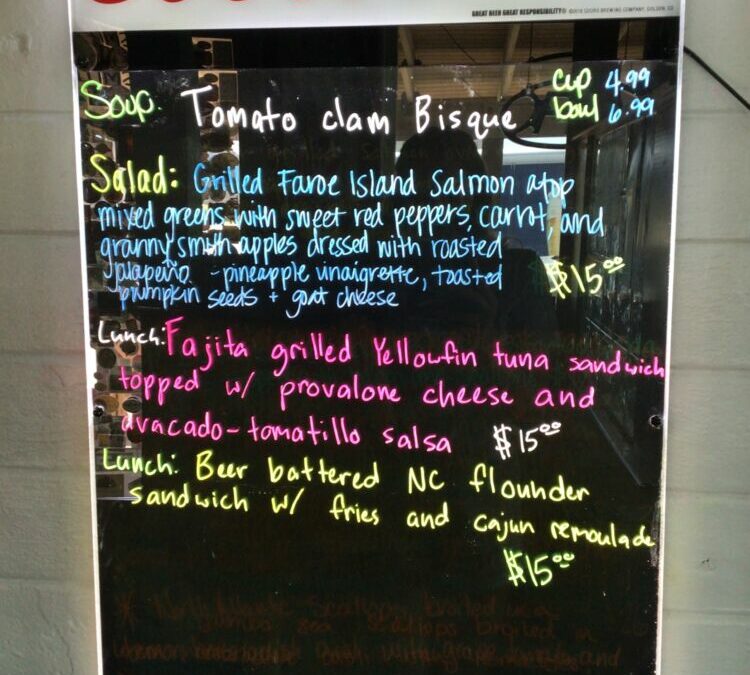 GREAT BEER GREAT RESPONSIBILITY®
Soup: Tomato clam Bisque
cup 4.99
bowl 6.99
Salad: Grilled Faroe Island Salmon atop
mixed greens with sweet red peppers, carrot, and
granny smith apples dressed with roasted
jalapeño - pineapple vinaigrette, toasted
pumpkin seeds + goat cheese
$15.00
Lunch: Fajita grilled Yellowfin tuna sandwich
topped w/ provalone cheese and
avacado-tomatillo salsa $15.00
Lunch: Beer battered NC flounder
sandwich w/ fries and cajun remoulade
$15.00